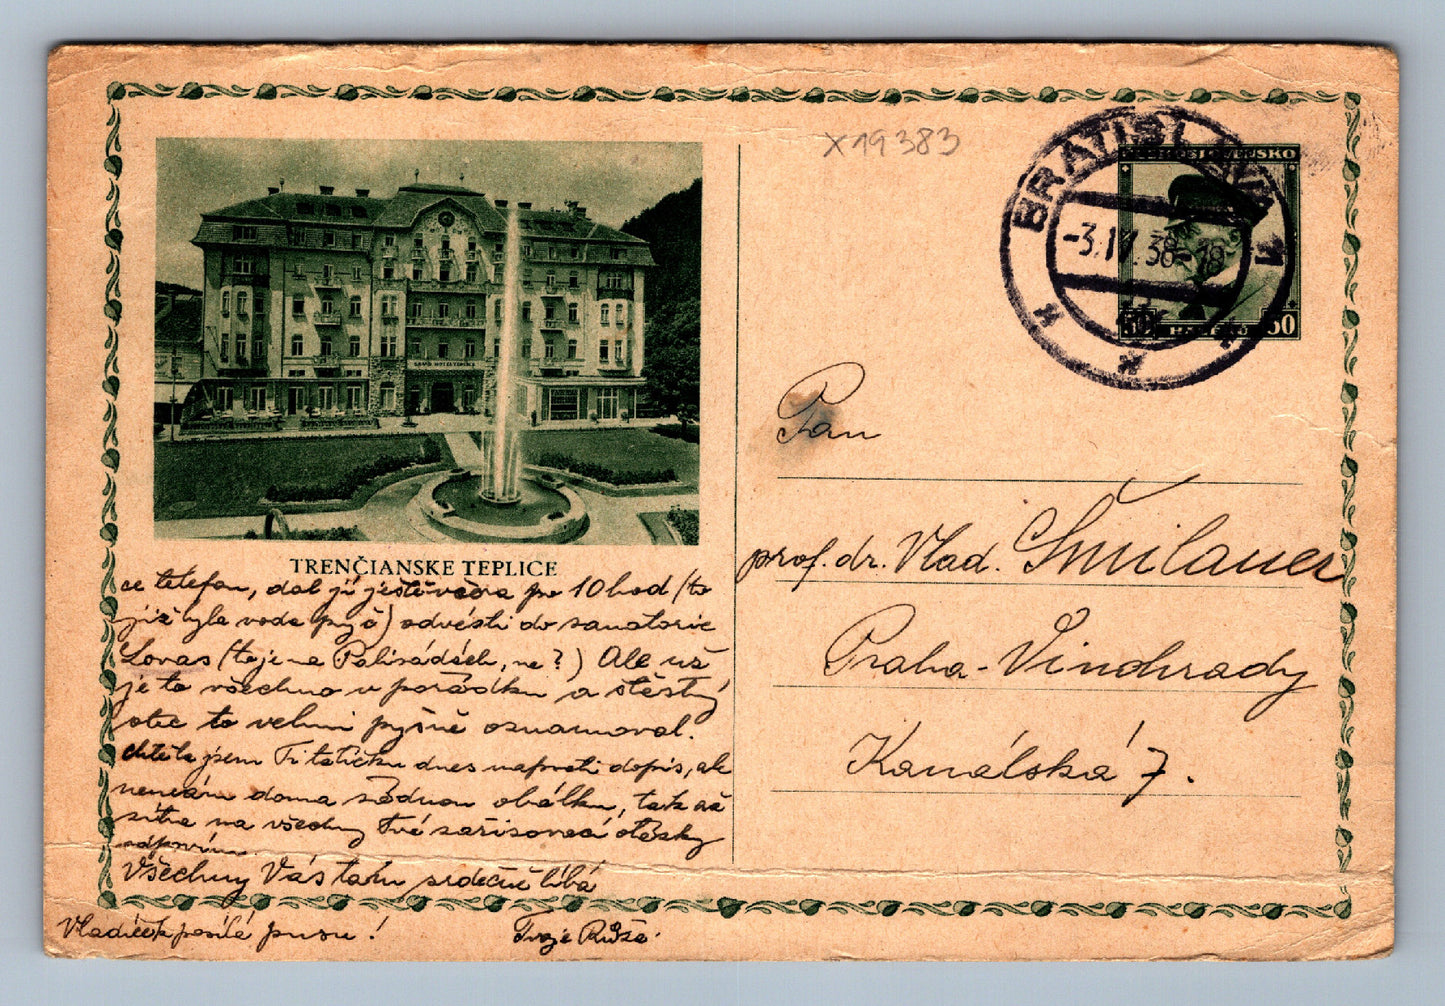 X19383
BRATISLAVA 1
-3.IV.38-18
ČESKOSLOVENSKO
50 HALÉŘŮ 50
GRAND HOTEL
TRENČIANSKE TEPLICE
Pan
prof. dr. Vlad. Šmilauer
Praha-Vinohrady
Kanálská 7.
ce telefon, dal ji ještě večer po 10 hod (to
již byla voda pryč) odvésti do sanatoria
Lovas (to je na Palisádách, ne?) Ale už
je to všechno v pořádku a šťastný
otec to velmi pyšně oznamoval.
Chtěla jsem Ti tatíčku dnes napsati dopis, ale
nemám doma žádnou obálku, tak až
zítra na všechny Tvé otázky
odpovím.
Všechny Vás tam srdečně líbá
Tvoje Růža.
Vladíček posílá pusu!